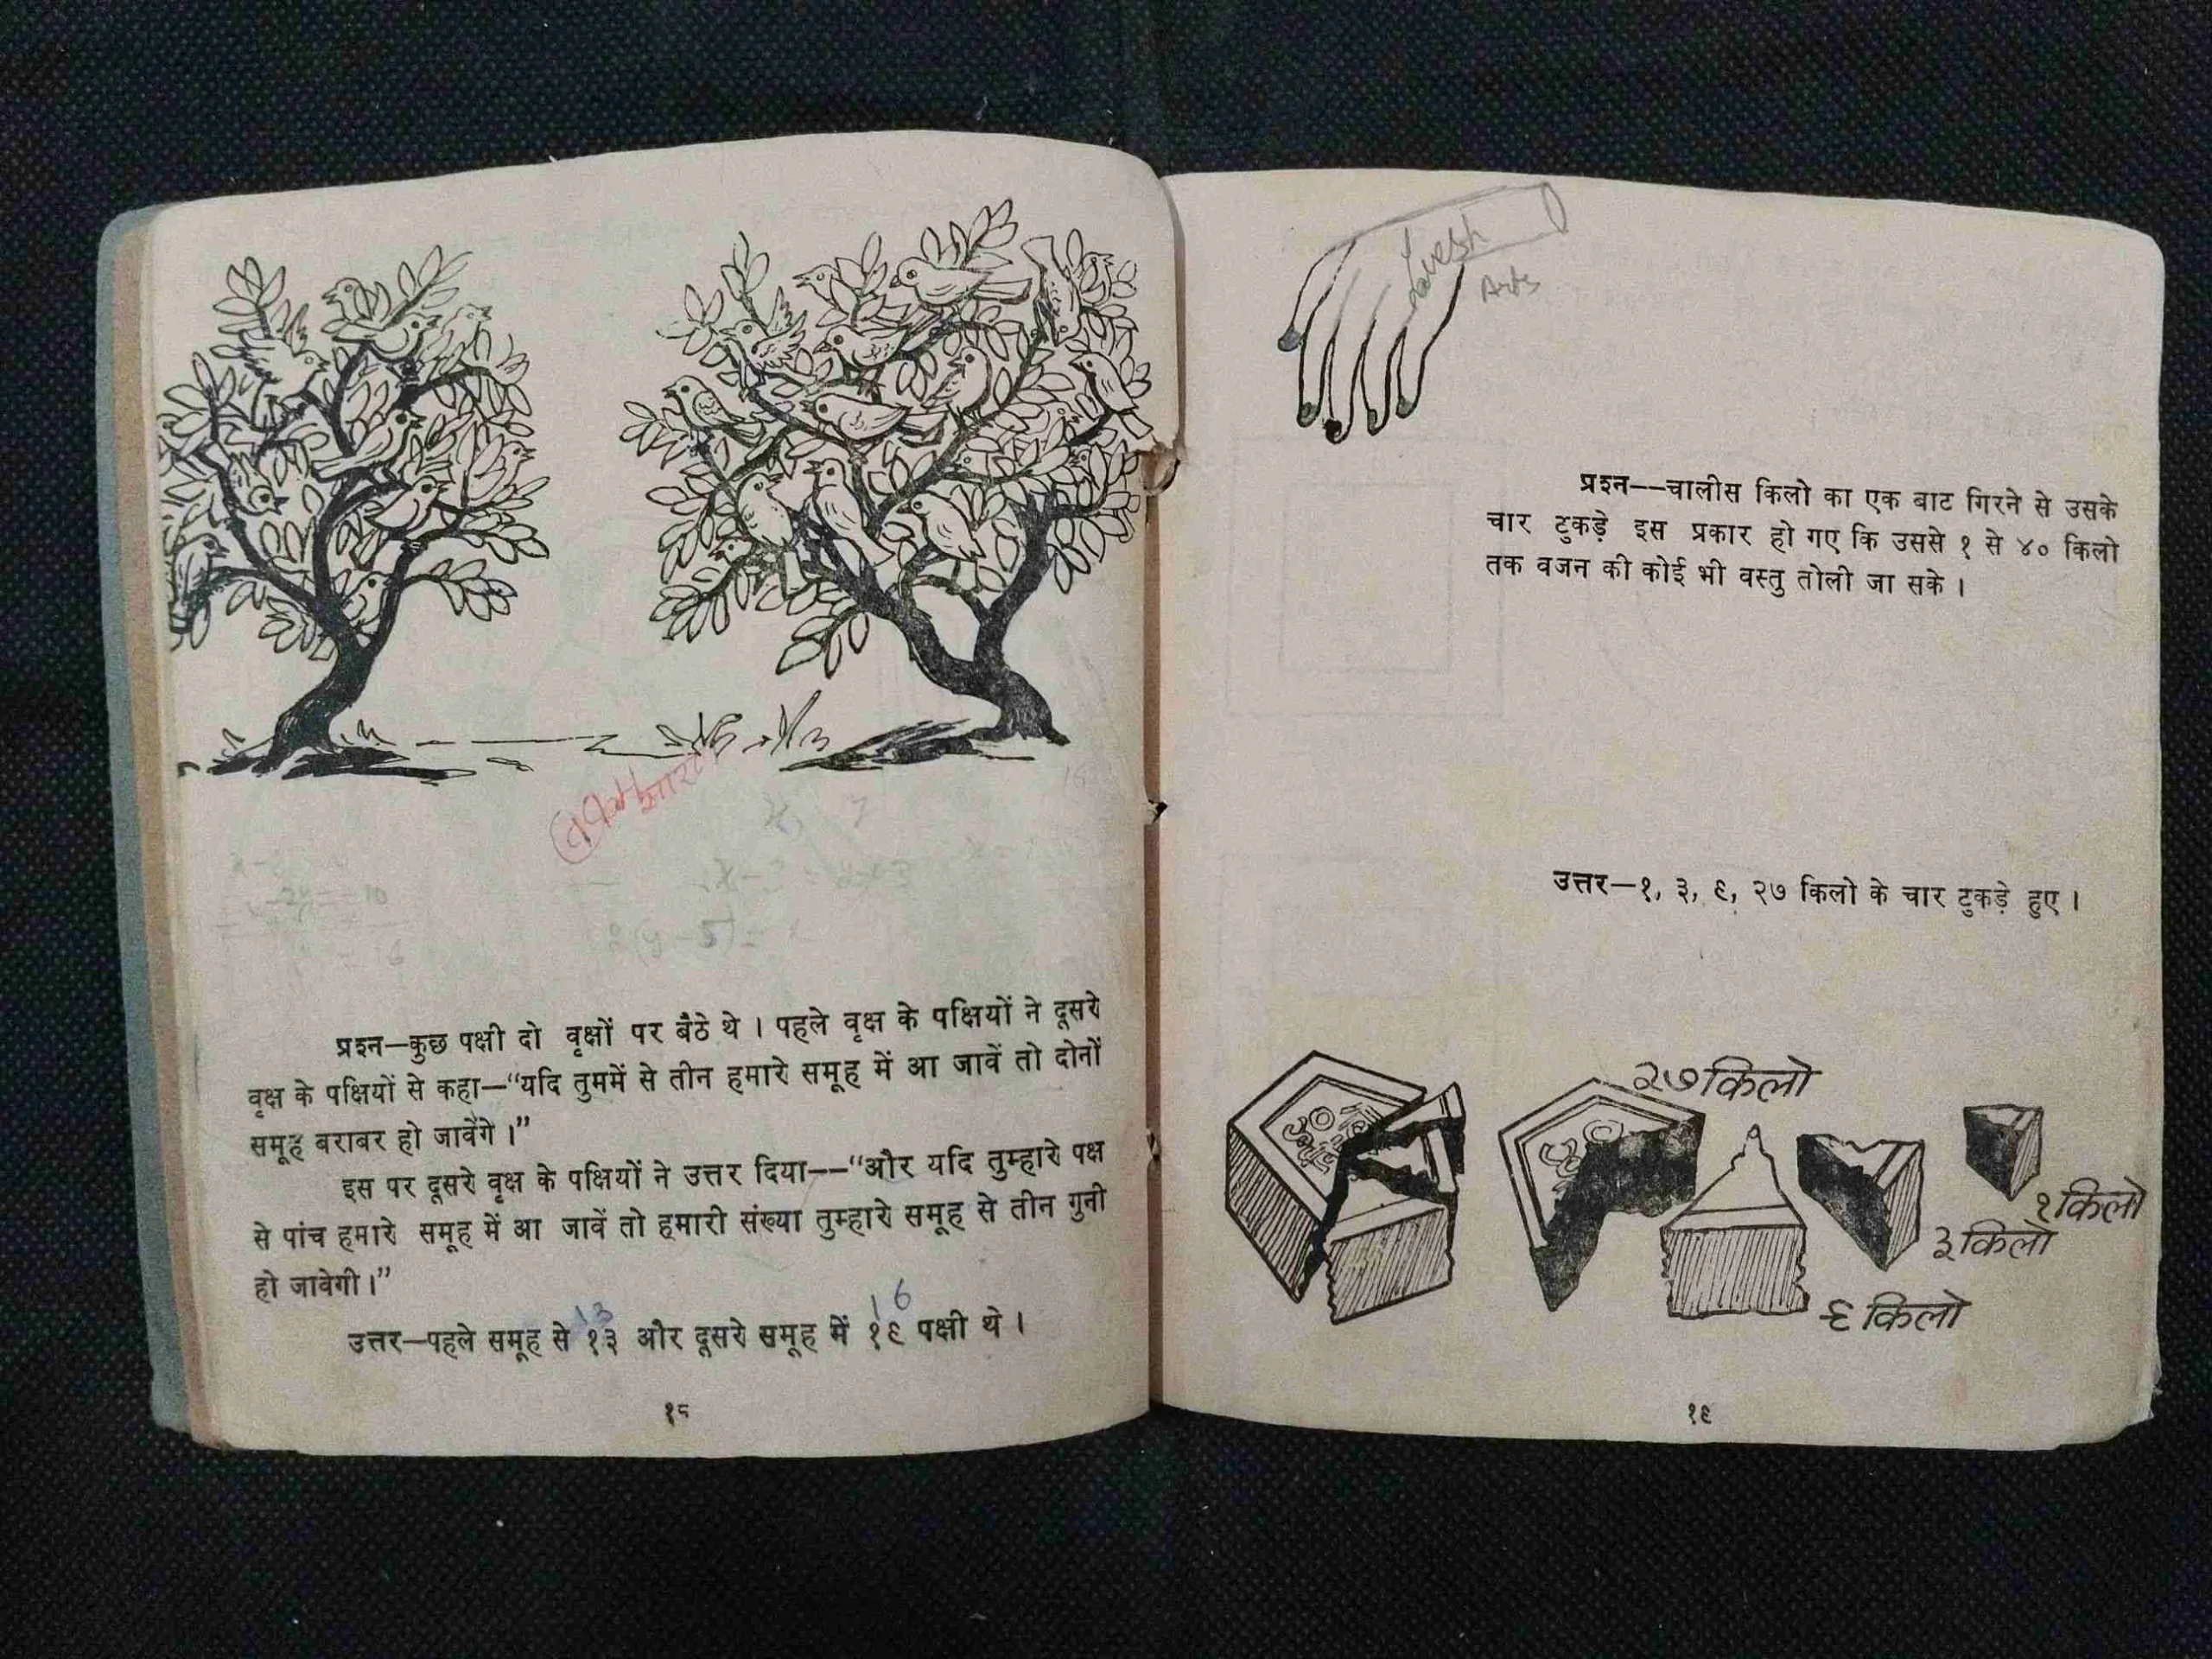 प्रश्न—कुछ पक्षी दो वृक्षों पर बैठे थे । पहले वृक्ष के पक्षियों ने दूसरे
वृक्ष के पक्षियों से कहा—“यदि तुममें से तीन हमारे समूह में आ जावें तो दोनों
समूह बराबर हो जावेंगे ।”
इस पर दूसरे वृक्ष के पक्षियों ने उत्तर दिया——“और यदि तुम्हारे पक्ष
से पांच हमारे समूह में आ जावें तो हमारी संख्या तुम्हारे समूह से तीन गुनी
हो जावेगी ।”
13 16
उत्तर—पहले समूह से १३ और दूसरे समूह में १९ पक्षी थे ।
१८
Lovesh
Arts
प्रश्न——चालीस किलो का एक बाट गिरने से उसके
चार टुकड़े इस प्रकार हो गए कि उससे १ से ४० किलो
तक वजन की कोई भी वस्तु तोली जा सके ।
उत्तर—१, ३, ९, २७ किलो के चार टुकड़े हुए ।
२७ किलो
१ किलो
३ किलो
९ किलो
१९